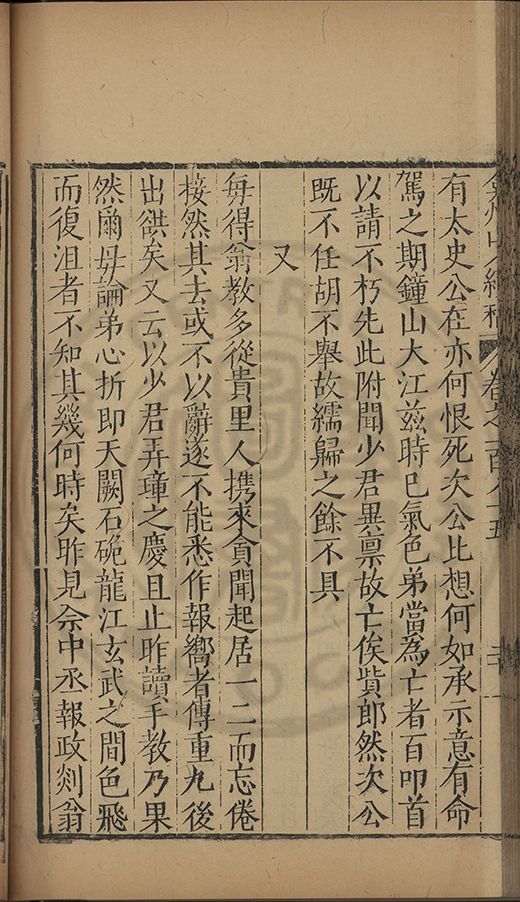 弇州山人續稿 卷之一百八十五
有太史公在亦何恨死次公比想何如承示意有命
駕之期鐘山大江茲時已氣色弟當為亡者百叩首
以請不朽先此附聞少君異稟故亡俟貲郎然次公
既不任胡不舉故繻歸之餘不具
又
毎得翁教多從貴里人携來貪聞起居一二而忘倦
接然其去或不以辭遂不能悉作報嚮者傳重九後
出欲矣又云以少君弄璋之慶且止昨讀手教乃果
然爾毋論弟心折即天闕石硊龍江玄武之間色飛
而復沮者不知其幾何時矣昨見佘中丞報政剡翁